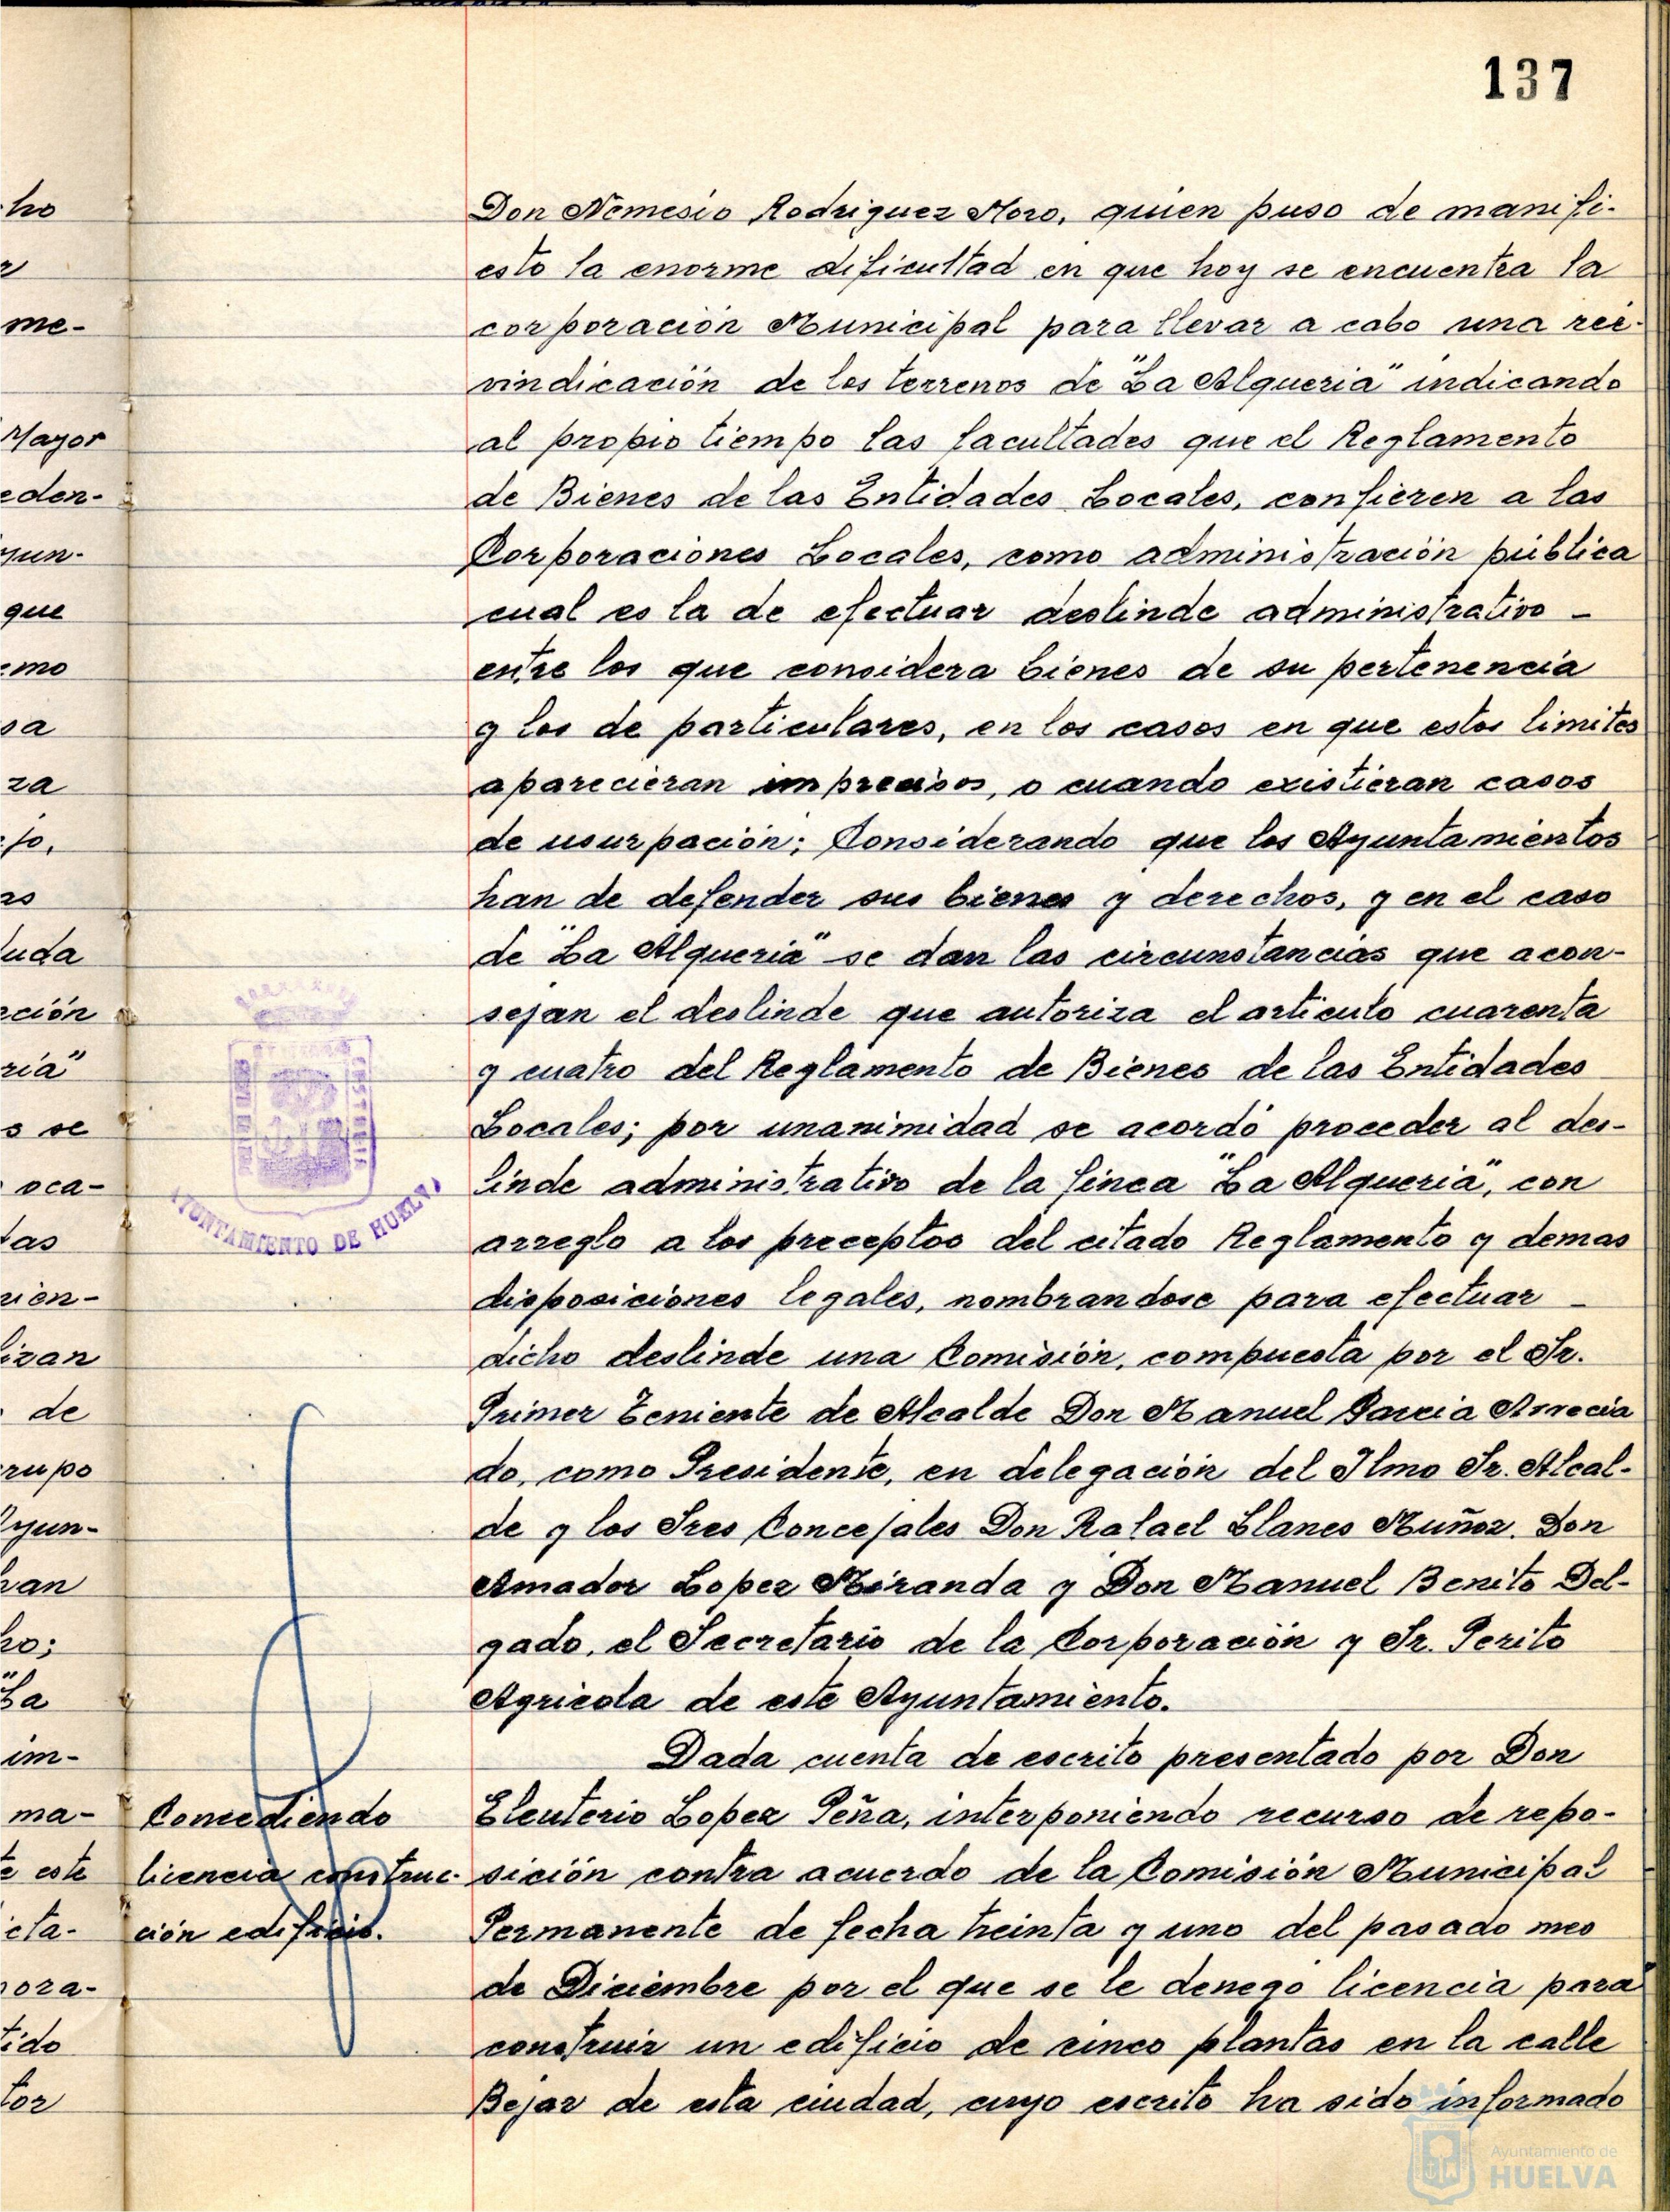 137
Don Nemesio Rodriguez Moro, quien puso de manifi-
esto la enorme dificultad en que hoy se encuentra la
corporación Municipal para llevar a cabo una rei-
vindicación de los terrenos de "La Alqueria" indicando
al propio tiempo las facultades que el Reglamento
de Bienes de las Entidades Locales, confieren a las
Corporaciones Locales, como administración pública
cual es la de efectuar deslinde administrativo -
entre los que considera bienes de su pertenencia
y los de particulares, en los casos en que estos limites
aparecieran imprecisos, o cuando existieran casos
de usurpación; Considerando que los Ayuntamientos
han de defender sus bienes y derechos, y en el caso
de "La Alqueria" se dan las circunstancias que acon-
sejan el deslinde que autoriza el articulo cuarenta
y cuatro del Reglamento de Bienes de las Entidades
Locales; por unanimidad se acordó proceder al des-
linde administrativo de la finca "La Alqueria", con
arreglo a los preceptos del citado Reglamento y demas
disposiciones legales, nombrandose para efectuar -
dicho deslinde una Comisión, compuesta por el Sr.
Primer Teniente de Alcalde Don Manuel Garcia Arrecia
do, como Presidente, en delegación del Ilmo Sr. Alcal-
de y los Sres Concejales Don Rafael Llanes Muñoz, Don
Amador Lopez Miranda y Don Manuel Benito Del-
gado, el Secretario de la Corporación y Sr. Perito
Agricola de este Ayuntamiento.
Dada cuenta de escrito presentado por Don
Eleuterio Lopez Peña, interponiendo recurso de repo-
sición contra acuerdo de la Comisión Municipal
Permanente de fecha treinta y uno del pasado mes
de Diciembre por el que se le denego licencia para
construir un edificio de cinco plantas en la calle
Bejar de esta ciudad, cuyo escrito ha sido informado
Concediendo
licencia construc-
ción edificio.
AYUNTAMIENTO DE HUELVA
ho
r
me-
Mayor
eden-
yun-
que
emo
sa
za
jo,
as
uda
ción
ria"
s se
oca-
das
lizan
de
rupo
yun-
van
ho;
"La
im-
ma-
e este
cta-
ora-
tido
tor
Ayuntamiento de
HUELVA